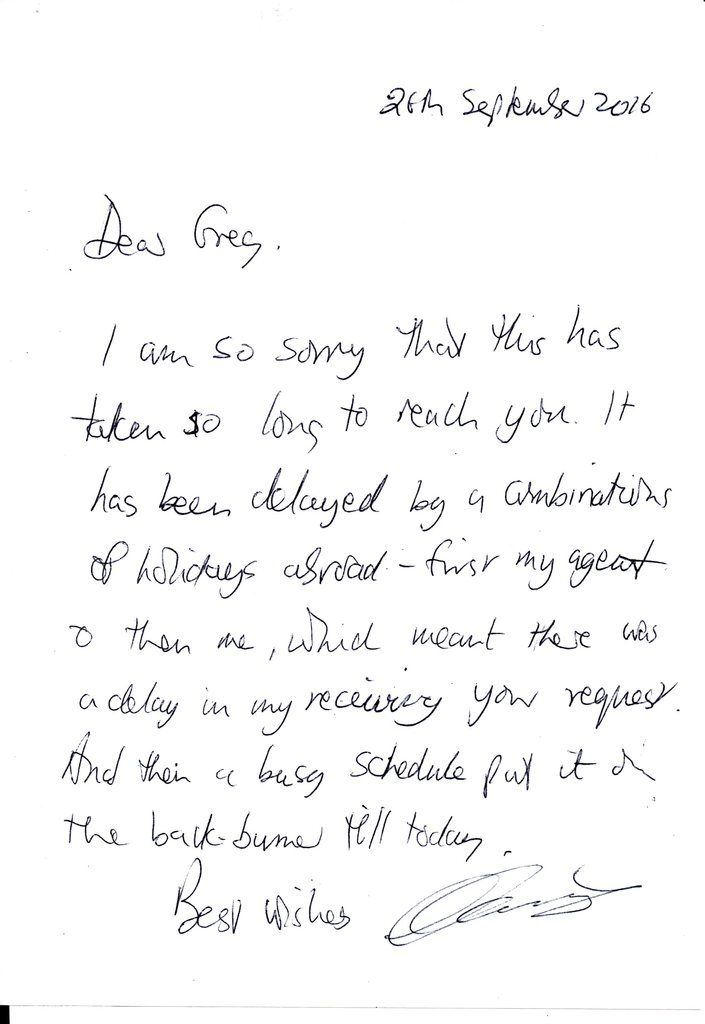 26th September 2016
Dear Greg.
I am so sorry that this has
taken so long to reach you. It
has been delayed by a combinations
of holidays abroad - first my agent
& then me, which meant there was
a delay in my receiving your request.
And then a busy schedule put it on
the back-burner till today.
Best wishes